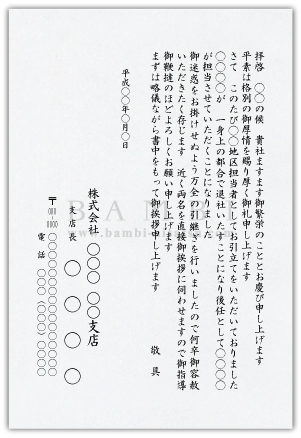 拝啓　○○の候　貴社ますます御繁栄のこととお慶び申し上げます
平素は格別の御厚情を賜り厚く御礼申し上げます
さて　このたび○○地区担当者としてお引立てをいただいておりました
○○○○が　一身上の都合で退社いたすことになり後任として○○○○
が担当させていただくことになりました
御迷惑をお掛けせぬよう万全の引継ぎを行いましたので何卒御容赦
いただきたく存じます　近く両名を直接御挨拶に伺わせますので御指導
御鞭撻のほどよろしくお願い申し上げます
まずは略儀ながら書中をもって御挨拶申し上げます
敬具
平成○○年○○月○○日
株式会社　○○○　○○支店
支店長　○　○　○　○
〒○○○-○○○○　○○○○○○○○○○○○○○
電話　○○○（○○○）○○○○
BAMBI
www.bambi